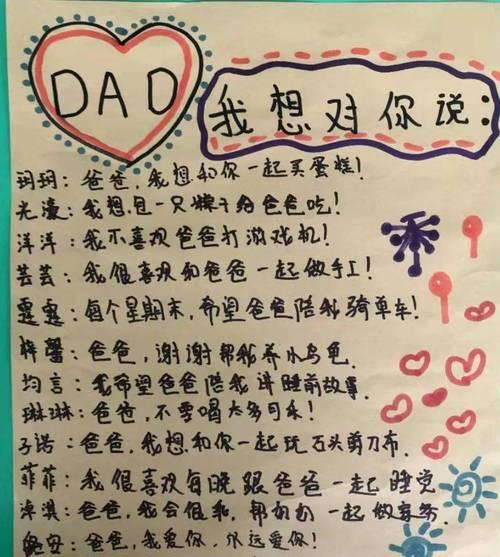 DAD
我想对你说:
珂珂:爸爸,我想和你一起买蛋糕!
光濠:我想包一只粽子给爸爸吃!
洋洋:我不喜欢爸爸打游戏机!
芸芸:我很喜欢和爸爸一起做手工!
霆霆:每个星期末,希望爸爸陪我骑单车!
梓馨:爸爸,谢谢帮我养小乌龟。
均言:我希望爸爸陪我讲睡前故事。
琳琳:爸爸,不要喝太多可乐!
子诺:爸爸,我想和你一起玩石头剪刀布。
菲菲:我很喜欢每晚跟爸爸一起睡觉
爸爸,我会很乖,帮奶奶一起做家务
安:爸爸,我爱你,永远爱你!